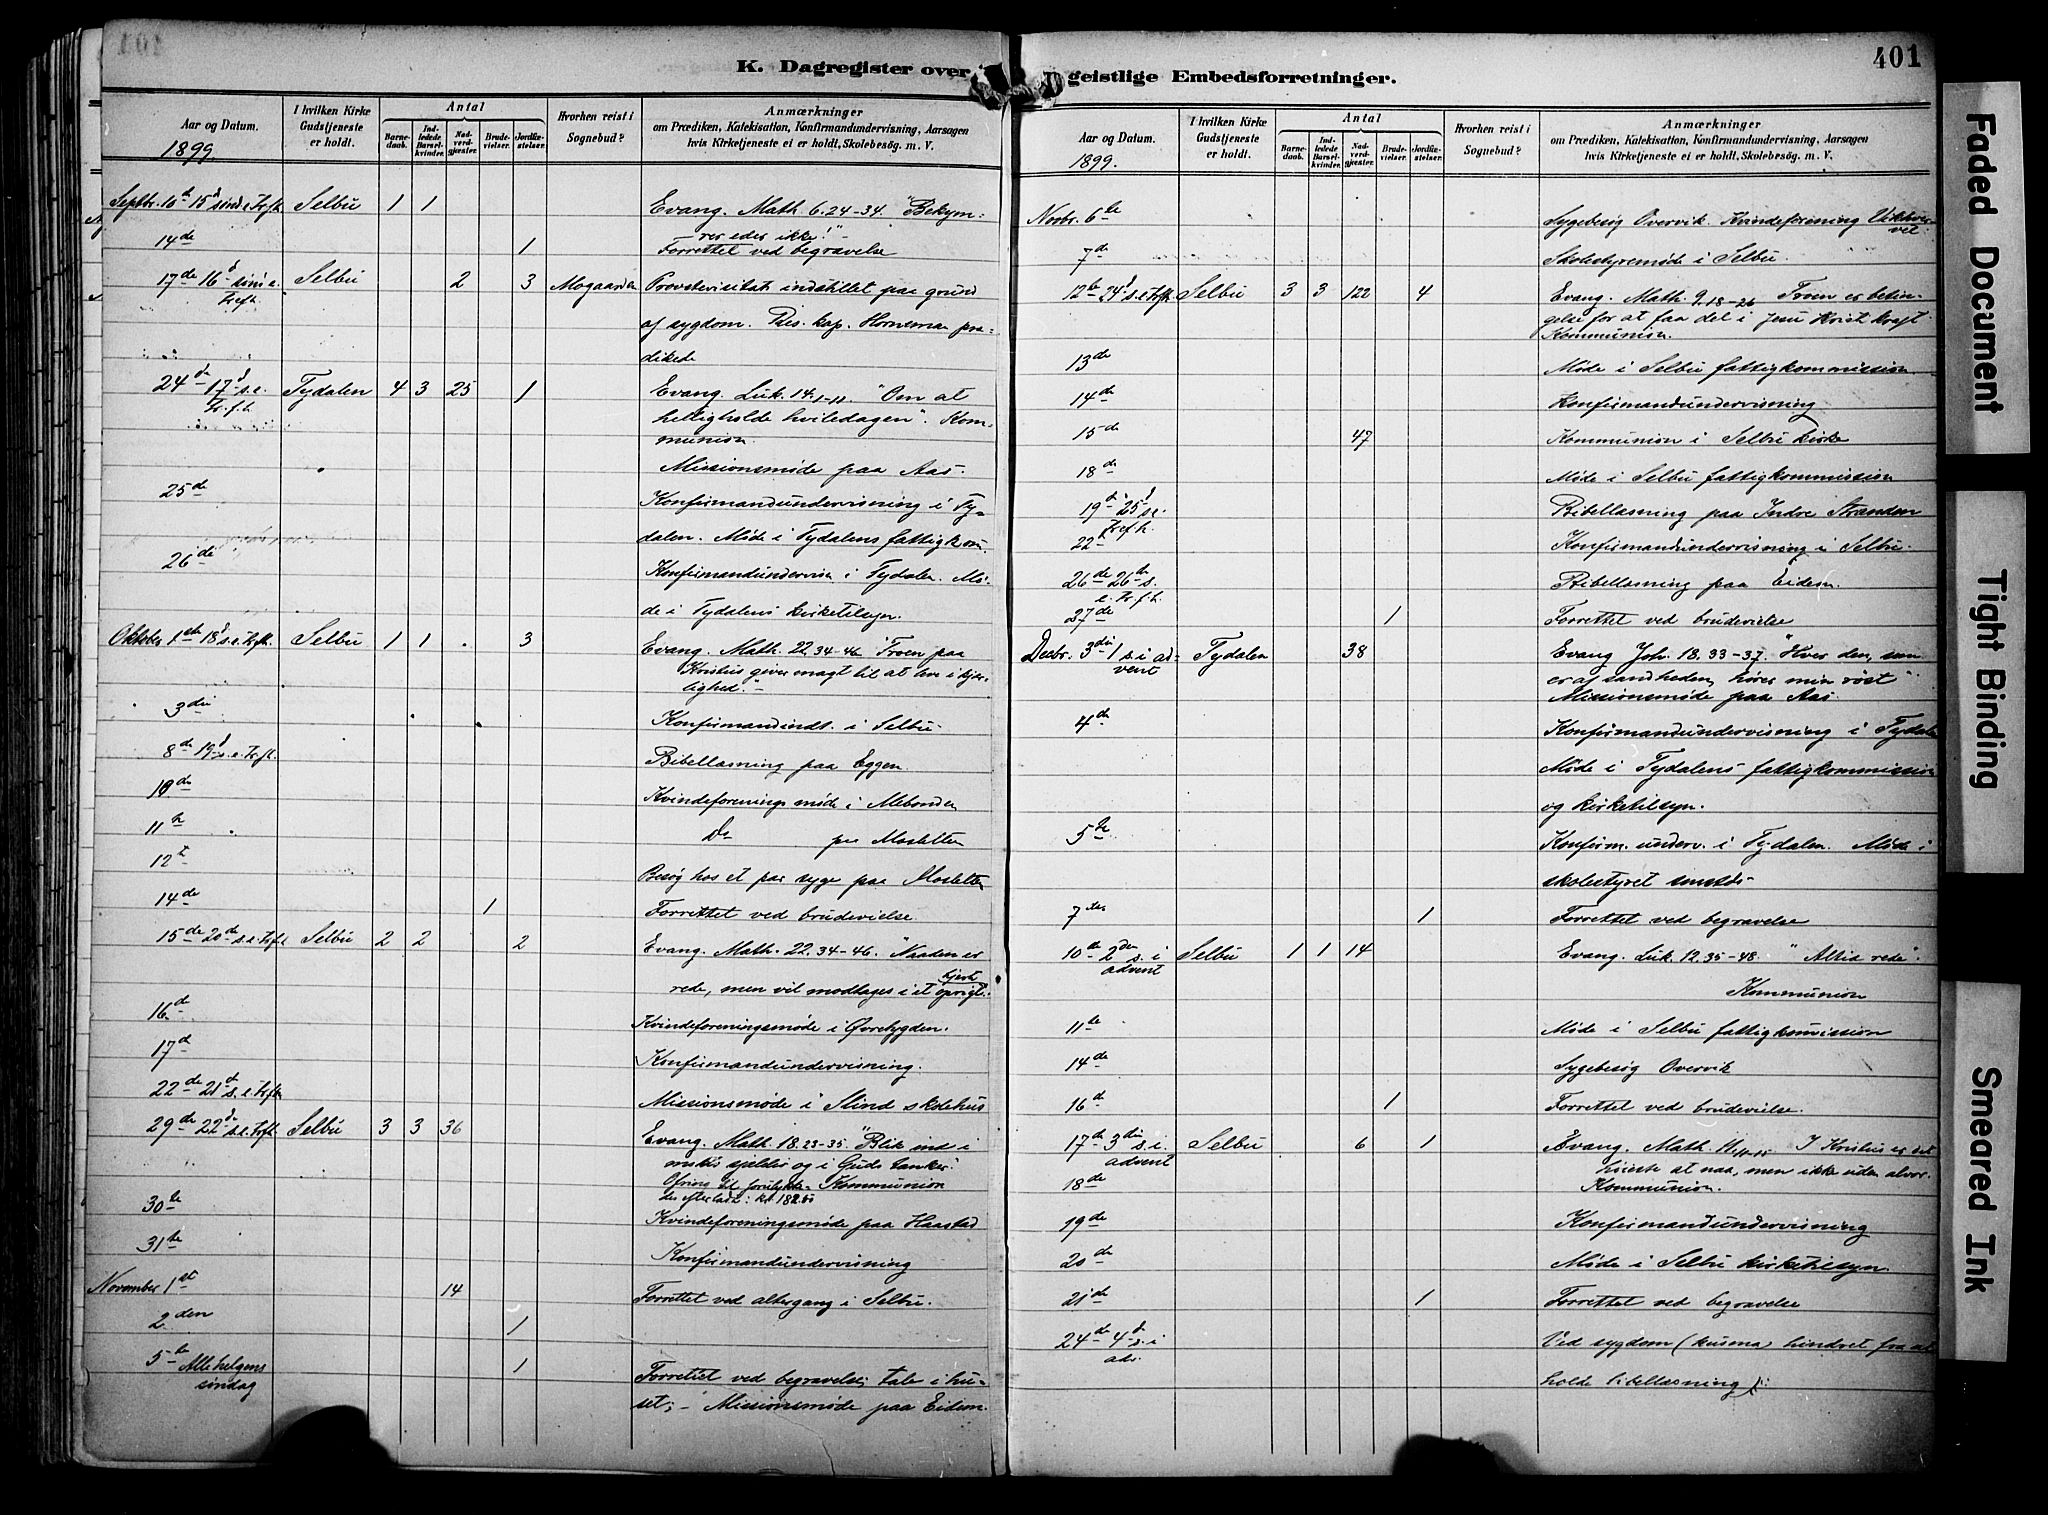 401
K. Dagregister over geistlige Embedsforretninger.
Aar og Datum.
1899.
I hvilken Kirke Gudstjeneste er holdt.
Antal
Barnedaab.
Indledede Barselkvinder.
Nadverdgjester.
Brudevielser.
Jordfæstelser.
Hvorhen reist i Sognebud?
Anmærkninger
om Prædiken, Katekisation, Konfirmandundervisning, Aarsagen
hvis Kirketjeneste ei er holdt, Skolebesøg. m. V.
Septbr. 10de 15d sønd e. Trfh. Selbu 1 1 Evang. Math. 6.24-34. "Bekym-
rer eder ikke!"
14de 1 Forrettet ved begravelse
17de 16d sønd e. Trefh. Selbu 2 3 Mogaarden Provstevisitats indstillet paa grund
af sygdom. Pers. kap. Horneman præ-
dikede
24de 17d s.e. Tr.f.h. Tydalen 4 3 25 1 Evang. Luk. 14.1-11. "Om at
helligholde hviledagen". Kom-
munion.
Missionsmøde paa Aas.
25de Konfirmandundervisning i Ty-
dalen. Møde i Tydalens fattigkom.
26de Konfirmandundervisn i Tydalen. Mø-
de i Tydalens kirketilsyn.
Oktober 1ste 18d s.e. Trfh. Selbu 1 1 3 Evang. Math. 22.34-46 "Troen paa
Kristus giver magt til at leve i kjær-
lighed."
3die Konfirmandundt. i Selbu
8de 19d s.e. Trfh. Bibellæsning paa Eggen.
10de Kvindeforenings møde i Mebonden
11te Do paa Mosletten
12te Besøg hos et par syge paa Mosletten
14de 1 Forrettet ved brudevielse
15de 20de s.e. Trfh Selbu 2 2 2 Evang. Math. 22.34-46. "Naaden er
rede, men vil modtages i et oprigt. hjerte
16de Kvindeforeningsmøde i Øvrebygden.
17de Konfirmandundervisning.
22de 21d s.e. Trfh Missionsmøde i Flind skolehus
29de 22de s.e. Trfh. Selbu 3 3 36 Evang. Math. 18.23-35 "Blik ind i
sjelder og i Guds tanker.
Ofring til forulykke- Kommunion
des efterladte: kr. 182.50
30te Kvindeforeningsmøde paa Haastad
31te Konfirmandundervisning
November 1st 14 Forrettet ved altergang i Selbu.
2den 1
5te Allehelgens søndag 1 Forrettet ved begravelse; tale i hu-
set; - Missionsmøde paa Eidem.
Aar og Datum.
1899.
I hvilken Kirke Gudstjeneste er holdt.
Antal
Barnedaab.
Indledede Barselkvinder.
Nadverdgjester.
Brudevielser.
Jordfæstelser.
Hvorhen reist i Sognebud?
Anmærkninger
om Prædiken, Katekisation, Konfirmandundervisning, Aarsagen
hvis Kirketjeneste ei er holdt, Skolebesøg. m. V.
Novbr. 6te Sygebesøg Overvik. Kvindeforening Vikhver-
vet.
7de Skolestyremøde i Selbu.
12te 24d s.e. Trfh. Selbu 3 3 122 4 Evang. Math. 9.18-26 Troen er betin-
gelse for at faa del i Jesu Krist kraft
Kommunion.
13de Møde i Selbu fattigkommission
14de Konfirmandundervisning
15de 47 Kommunion i Selbu kirke
18de Møde i Selbu fattigkommission
19de 25d s.e. Tref.h. Bibellæsning paa Indre Stranden
22 Konfirmandundervisning i Selbu.
26de 26de s. e. Tr.f.h. Bibellæsning paa Eidem.
27de 1 Forrettet ved brudevielse
Decbr. 3die 1 s. i advent Tydalen 38 Evang Joh. 18.33-37. "Hver den, som
er af sandheden, hører min røst"
Missionsmøde paa Aas.
4de Konfirmandundervisning i Tydalen
Møde i Tydalens fattigkommission
og kirketilsyn.
5te Konfirm. underv. i Tydalen. Møde i
skolestyret smstds
7de 1 Forrettet ved begravelse
10de 2den s. i advent Selbu 1 1 14 Evang. Luk. 12.35-48 "Altid rede".
Kommunion
11te Møde i Selbu fattigkomission
14de Sygebesøg Overvik
16de 1 Forrettet ved brudevielse.
17de 3die s. i advent Selbu 6 1 Evang. Math. 11. I Kristus er det
høieste at naa, men ikke uden alvor.
18de Kommunion.
19de Konfirmandundervisning
20de Møde i Selbu kirketilsyn.
21de 1 Forrettet ved begravelse
24de 4d s. i adv. Ved sygdom (krusma) hindret fra at
holde bibellæsning
Faded Document
Tight Binding
Smeared Ink